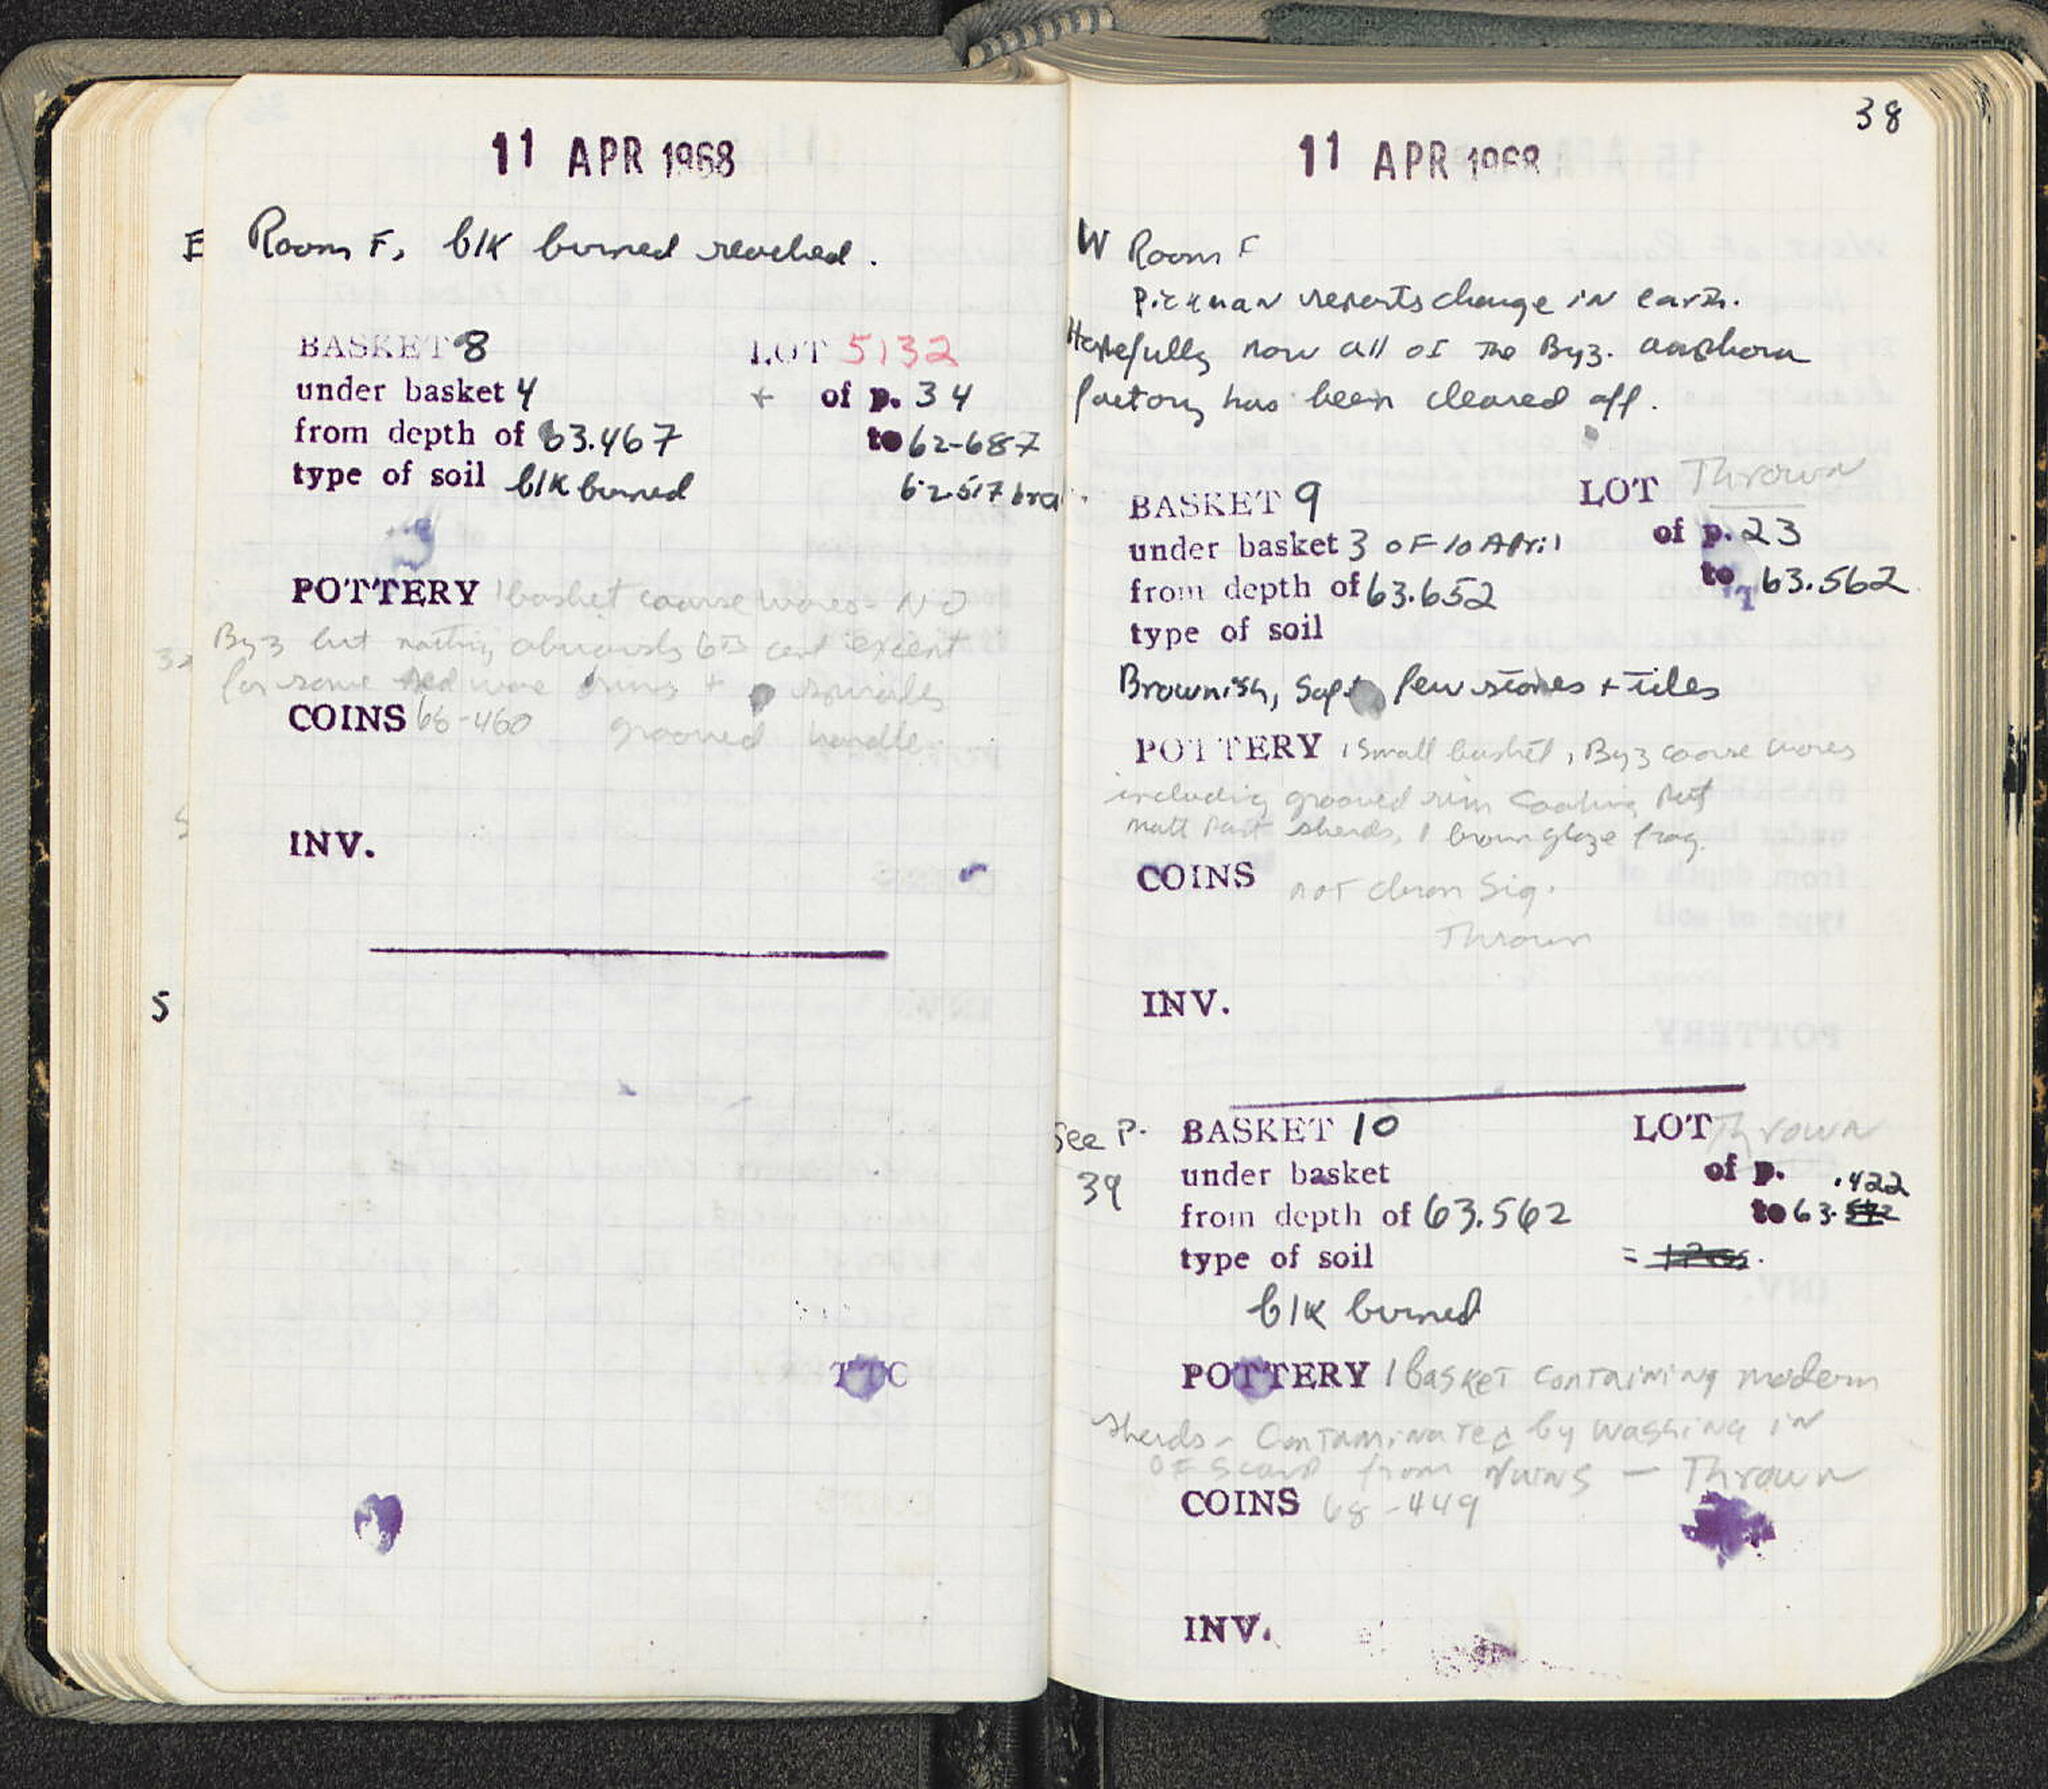 11 APR 1968
E Room F, blk burned reached.
BASKET 8 LOT 5132
under basket 4 + of p. 34
from depth of 63.467 to 62-687
type of soil blk burned 62.517
POTTERY 1 basket coarse wares - NO
Byz but nothing obviously 6th cent except
for some red ware rims +
COINS 68-460 grooved handle.
INV.
5
38
11 APR 1968
W Room F
Pickman reports change in earth.
Hopefully now all of the Byz. amphora
factory has been cleared off.
BASKET 9 LOT Thrown
under basket 3 OF 10 April of p. 23
from depth of 63.652 to 63.562
type of soil
Brownish, soft, few stones + tiles
POTTERY 1 small basket, Byz coarse wares
including grooved rim cooking pot
matt paint sherds, 1 brown glaze frag.
COINS not chron sig.
Thrown
INV.
See P. 39
BASKET 10 LOT Thrown
under basket of p.
from depth of 63.562 to 63.422
type of soil =
blk burned
POTTERY 1 basket containing modern
sherds - contaminated by washing in
OF scarp from rains - Thrown
COINS 68-449
INV.